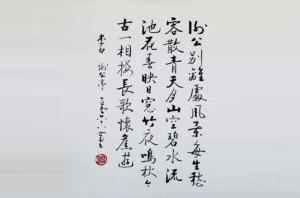 谢公别離處風景每生愁
客散青天月山空碧水流
池花春映日窓竹夜鳴秋今
古一相接長歌懷舊遊
李白 谢公亭